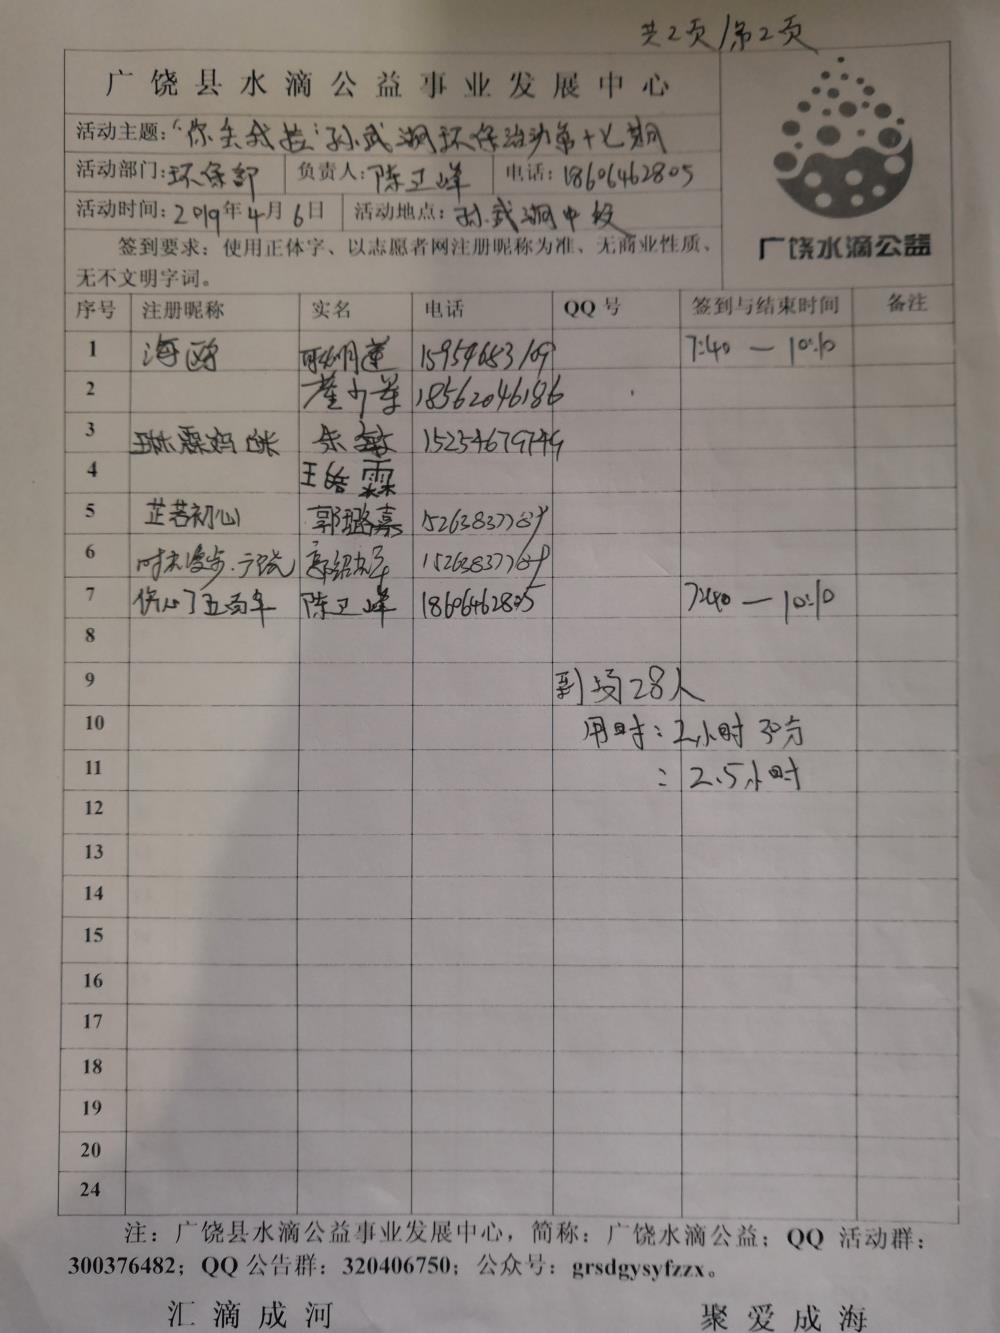 共2页/第2页
广饶县水滴公益事业发展中心
活动主题：“你丢我捡”孙武湖环保活动第十七期
活动部门：环保部 负责人：陈卫峰 电话：18606462805
活动时间：2019年4月6日 活动地点：孙武湖中段
签到要求：使用正体字、以志愿者网注册昵称为准、无商业性质、
无不文明字词。
广饶水滴公益
序号 注册昵称 实名 电话 QQ号 签到与结束时间 备注
1 海鸥 耿明莲 15954683109 7:40 — 10:10
2 崔少军 18562046186
3 琳霖妈咪 朱敏 15254679749
4 王皓霖
5 芷若初心 郭璐嘉 15263837789
6 时光漫步.广饶 15263837789
7 伤心了五百年 陈卫峰 18606462805 7:40 — 10:10
8
9 到场28人
10 用时：2小时30分
11 ：2.5小时
12
13
14
15
16
17
18
19
20
24
注：广饶县水滴公益事业发展中心，简称：广饶水滴公益；QQ 活动群：
300376482；QQ公告群：320406750；公众号：grsdgysyfzzx。
汇滴成河 聚爱成海